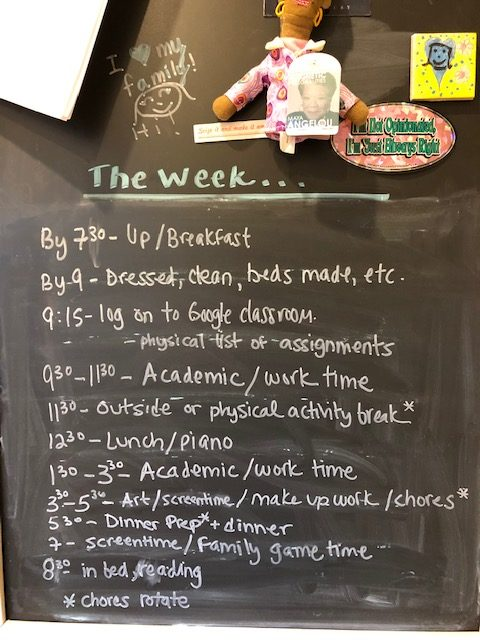 I ♥ my
family!
it!
Seize it and make it
MAYA
ANGELOU
I'm Not Opinionated,
I'm Just Always Right
The Week...
By 7³⁰- Up/Breakfast
By 9 - Dressed, clean, beds made, etc.
9:15- log on to Google classroom.
- physical list of assignments
9³⁰-11³⁰- Academic/work time
11³⁰- outside or physical activity break*
12³⁰- Lunch/piano
1³⁰-3³⁰- Academic/work time
3³⁰-5³⁰- Art/screentime/make up work/chores*
5³⁰- Dinner Prep*+dinner
7- screentime/Family game time
8³⁰ in bed, reading
* chores rotate